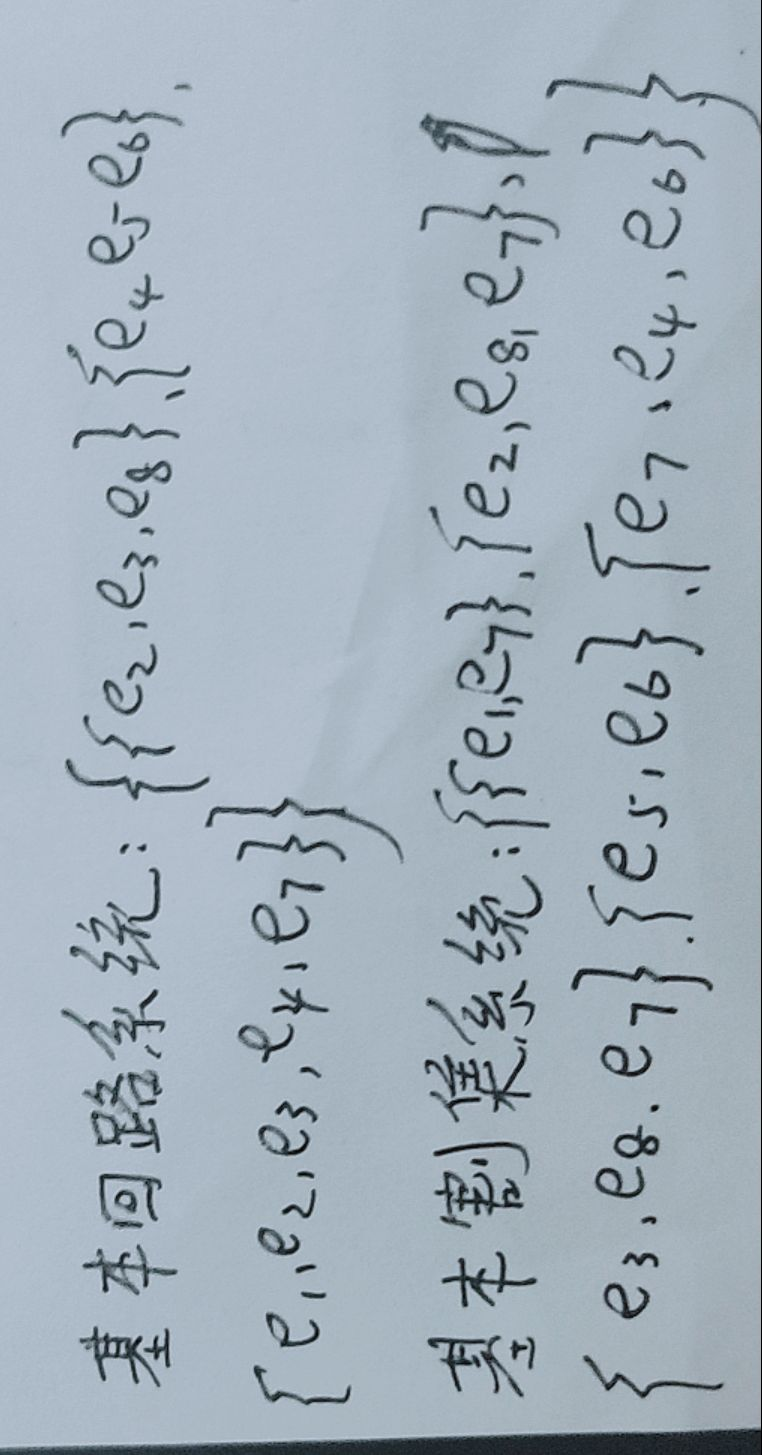 基本回路系统:{{e2,e3,e8},{e4 e5 e6},
{e1,e2,e3,e4,e7}}
基本割集系统:{{e1,e7},{e2,e8,e7},
{e3,e8,e7},{e5,e6},{e7,e4,e6}}